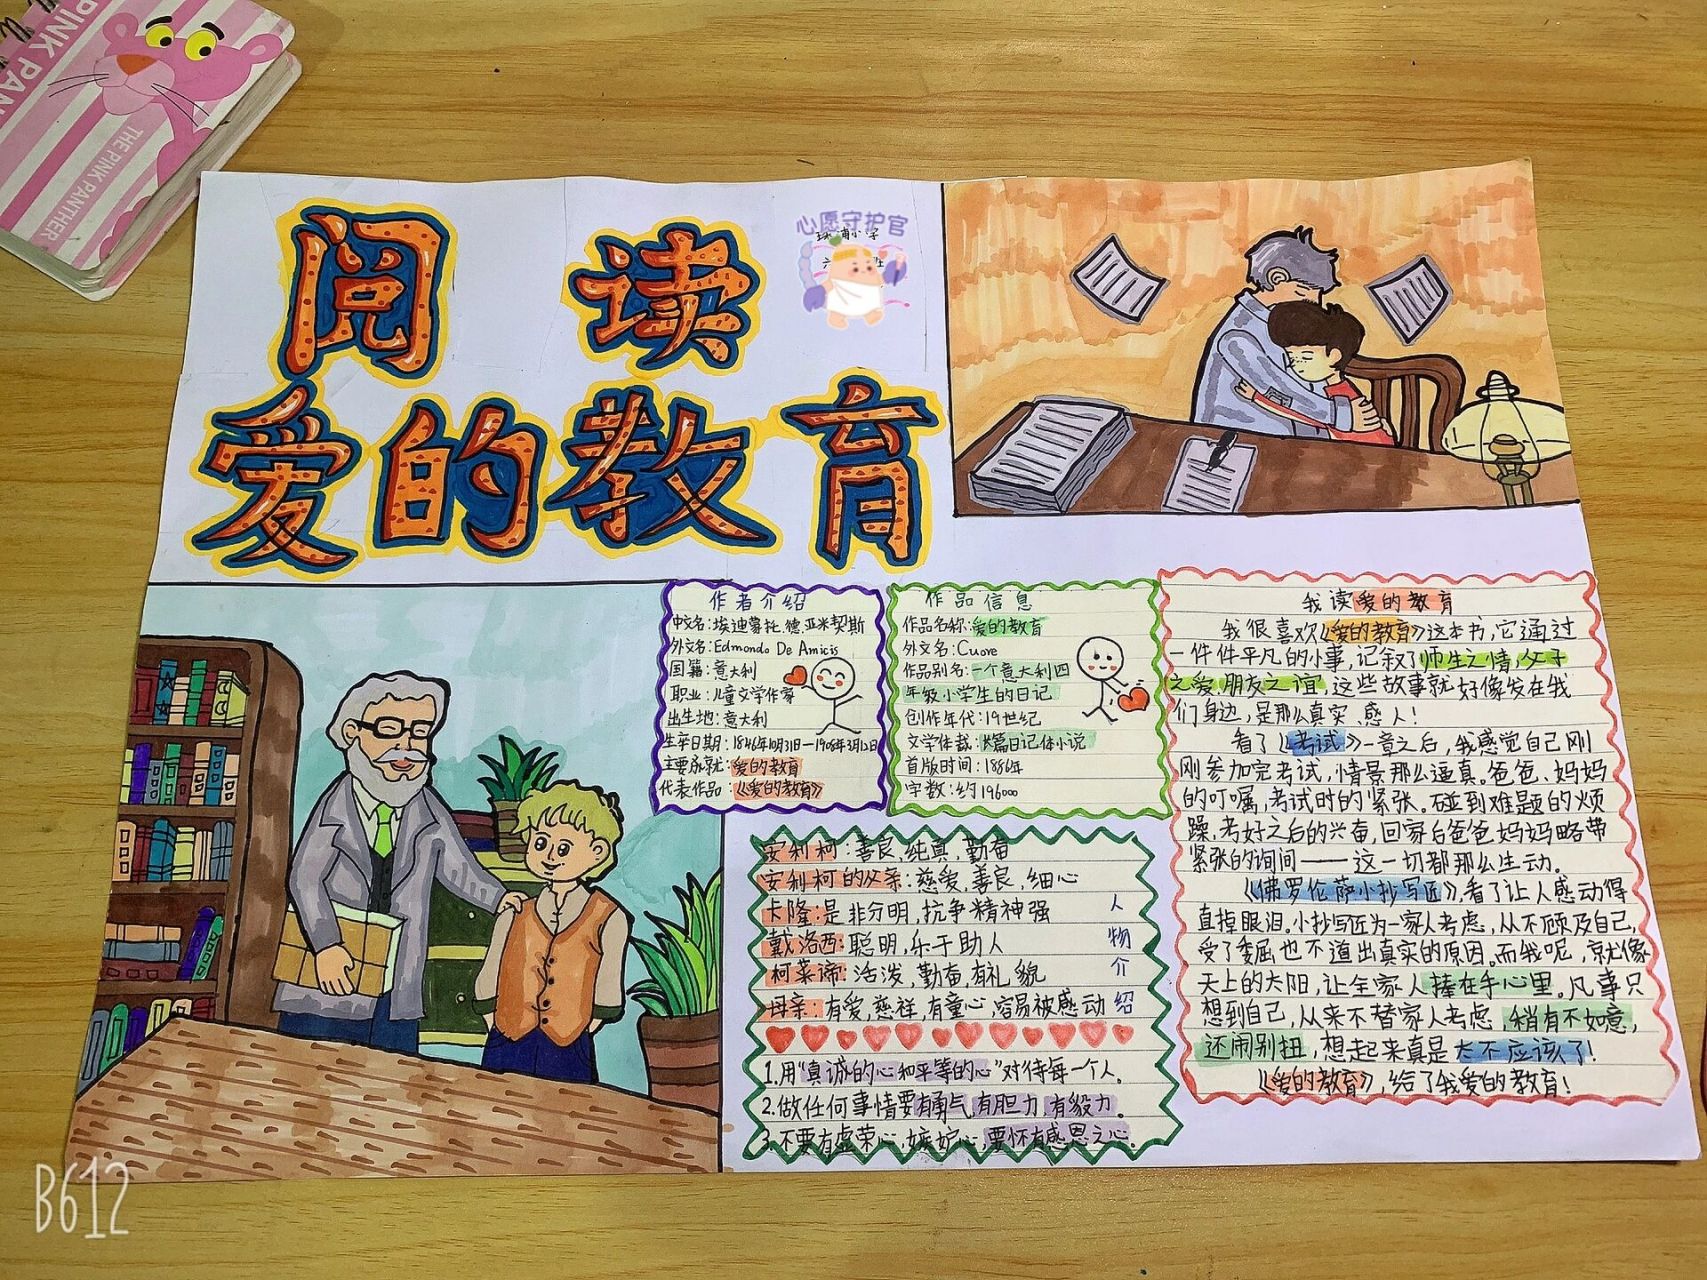 PINK PAN
THE PINK PANTHER
阅读
爱的教育
心愿守护官
作者介绍
中文名:埃迪蒙托.德.亚米契斯
外文名:Edmondo De Amicis
国籍:意大利
职业:儿童文学作家
出生地:意大利
生卒日期:1846年10月31日—1908年3月12日
主要成就:爱的教育
代表作品:《爱的教育》
作品信息
作品名称:爱的教育
外文名:Cuore
作品别名:一个意大利四
年级小学生的日记
创作年代:19世纪
文学体裁:长篇日记体小说
首版时间:1886年
字数:约196000
我读爱的教育
我很喜欢《爱的教育》这本书,它通过
一件件平凡的小事,记叙了师生之情,父子
之爱,朋友之谊,这些故事就好像发在我
们身边,是那么真实、感人!
看了《考试》一章之后,我感觉自己刚
刚参加完考试,情景那么逼真。爸爸、妈妈
的叮嘱,考试时的紧张。碰到难题的烦
躁,考好之后的兴奋,回家后爸爸妈妈略带
紧张的询间——这一切都那么生动。
《佛罗伦萨小抄写匠》,看了让人感动得
直掉眼泪。小抄写匠为一家人考虑,从不顾及自己,
受了委屈也不道出真实的原因。而我呢,就像
天上的太阳,让全家人捧在手心里。凡事只
想到自己,从来不替家人考虑,稍有不如意,
还闹别扭,想起来真是太不应该了!
《爱的教育》,给了我爱的教育!
安利柯:善良,纯真,勤奋
安利柯的父亲:慈爱,善良,细心
卡隆:是非分明,抗争精神强
戴洛西:聪明,乐于助人
柯莱谛:活泼,勤奋,有礼貌
母亲:有爱,慈祥,有童心,容易被感动
人物介绍
1.用“真诚的心和平等的心”对待每一个人。
2.做任何事情要有勇气,有胆力,有毅力。
3.不要有虚荣心,嫉妒心,要怀有感恩之心。
B612